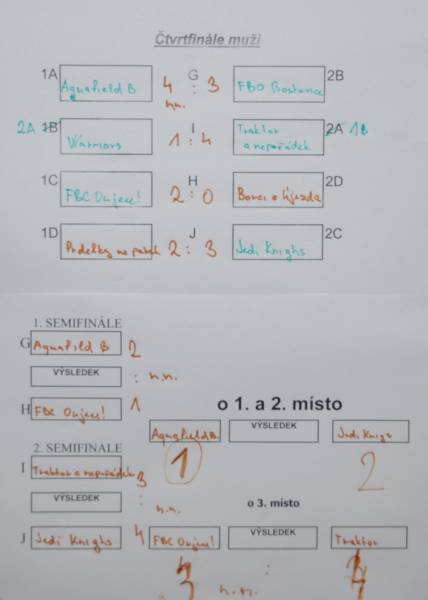 Čtvrtfinále muži
1A Aquafield B 4 G : 3 FBO 2B
n.n.
2A 1B Warriors 1 I : 4 Traktor a nepořádek 2A 1B
1C FBC Oujeee! 2 H : 0 Borci o hvězda 2D
1D Prdelky na 2 J : 3 Jedi Knighs 2C
1. SEMIFINÁLE
G Aquafield B 2
VÝSLEDEK : n.n.
H FBC Oujeee! 1
o 1. a 2. místo
Aquafield B VÝSLEDEK Jedi Knigs
1 2
2. SEMIFINÁLE
I Traktor a nepořádek 3
VÝSLEDEK : n.n.
o 3. místo
J Jedi Knighs 4
FBC Oujeee! VÝSLEDEK : Traktor
3 n.n. 4